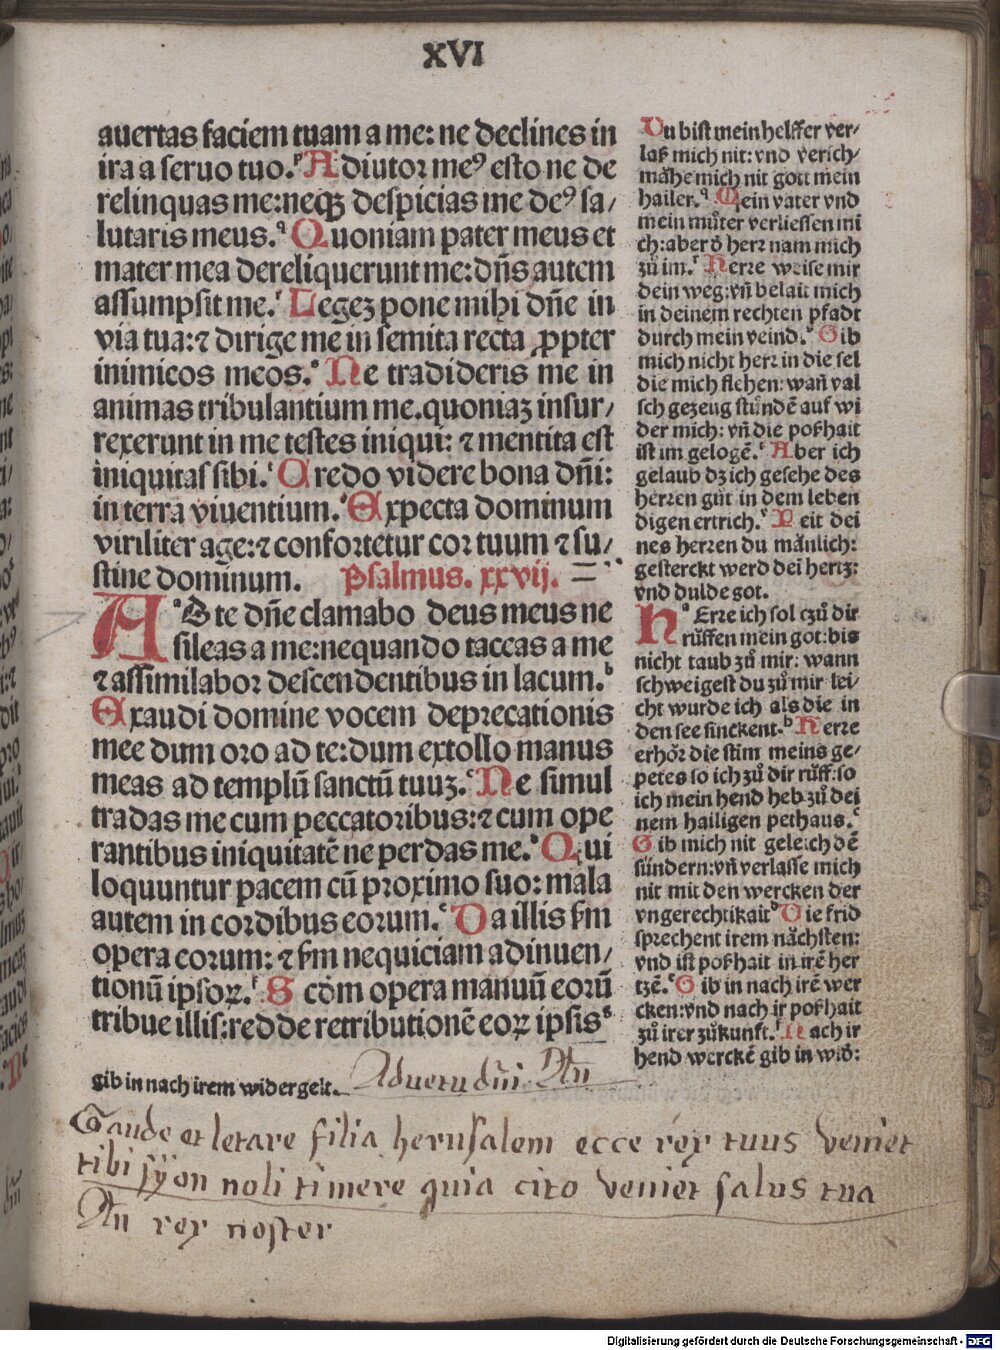 XVI
auertas faciem tuam a me: ne declines in
ira a seruo tuo.ᵖ Adiutor meꝰ esto ne de
relinquas me:neqꝫ despicias me deꝰ sa⸗
lutaris meus.q Quoniam pater meus et
mater mea dereliquerunt me: dn̄s autem
assumpsit me.ʳ Legeꝫ pone mihi dn̄e in
via tua:⁊ dirige me in semita recta ꝓpter
inimicos meos.ˢ Ne tradideris me in
animas tribulantium me.quoniaꝫ insur⸗
rexerunt in me testes iniqui: ⁊ mentita est
iniquitas sibi.ᵗ Credo videre bona dn̄i:
in terra viuentium.ᵛ Expecta dominum
viriliter age:⁊ confortetur cor tuum ⁊ su⸗
stine dominum. Psalmus. xxvij.
AᵃD te dn̄e clamabo deus meus ne
sileas a me:nequando taceas a me
⁊ assimilabor descendentibus in lacum.ᵇ
Exaudi domine vocem deprecationis
mee dum oro ad te:dum extollo manus
meas ad templū sanctū tuuꝫ.ᶜ Ne simul
tradas me cum peccatoribus:⁊ cum ope
rantibus iniquitatē ne perdas me.ᵈ Qui
loquuntur pacem cū proximo suo: mala
autem in cordibus eorum.ᵉ Da illis ẜm
opera eorum: ⁊ ẜm nequiciam adinuen⸗
tionū ipsoꝝ.ᶠ Scd̄m opera manuū eorū
tribue illis:redde retributionē eoꝝ ipsisᵍ
Du bist mein helffer ver⸗
laß mich nit: vnd verich⸗
mähe mich nit gott mein
hailer.q Mein vater vnd
mein můter verliessen mi
ch:aber ð herr nam mich
zů im.ʳ Herre weise mir
dein weg:vn̄ belait mich
in deinem rechten pfadt
durch mein veind.ˢ Gib
mich nicht herr in die sel
die mich flehen: wan̄ val
sch gezeug stůndē auf wi
der mich: vn̄ die poßhait
ist im gelogē.ᵗ Aber ich
gelaub dz ich gesehe des
herren gůt in dem leben
digen ertrich.ᵛ Peit dei
nes herren du mänlich:
gesterckt werd dei hertz:
vnd dulde got.
Hᵃ Erre ich sol czů dir
růffen mein got:bis
nicht taub zů mir: wann
schweigest du zů mir lei⸗
cht wurde ich als die in
den see sinckent.ᵇ Herre
erhör die stim meins ge⸗
petes so ich zů dir růff:so
ich mein hend heb zů dei
nem hailigen pethaus.ᶜ
Gib mich nit geleich dē
sündern:vn̄ verlasse mich
nit mit den wercken der
vngerechtikaitᵈ Die frid
sprechent irem nächsten:
vnd ist poßhait in irē her
tzē.ᵉ Gib in nach irē wer
cken:vnd nach ir poßhait
zů irer zůkunft.ᶠ Nach ir
hend werckē gib in wid:
gib in nach irem widergelt.
Aduetu dn̄i An
Gaude et letare filia herusalem ecce rex tuus veniet
tibi syon noli timere quia cito veniet salus tua
An rex noster
Digitalisierung gefördert durch die Deutsche Forschungsgemeinschaft - DFG